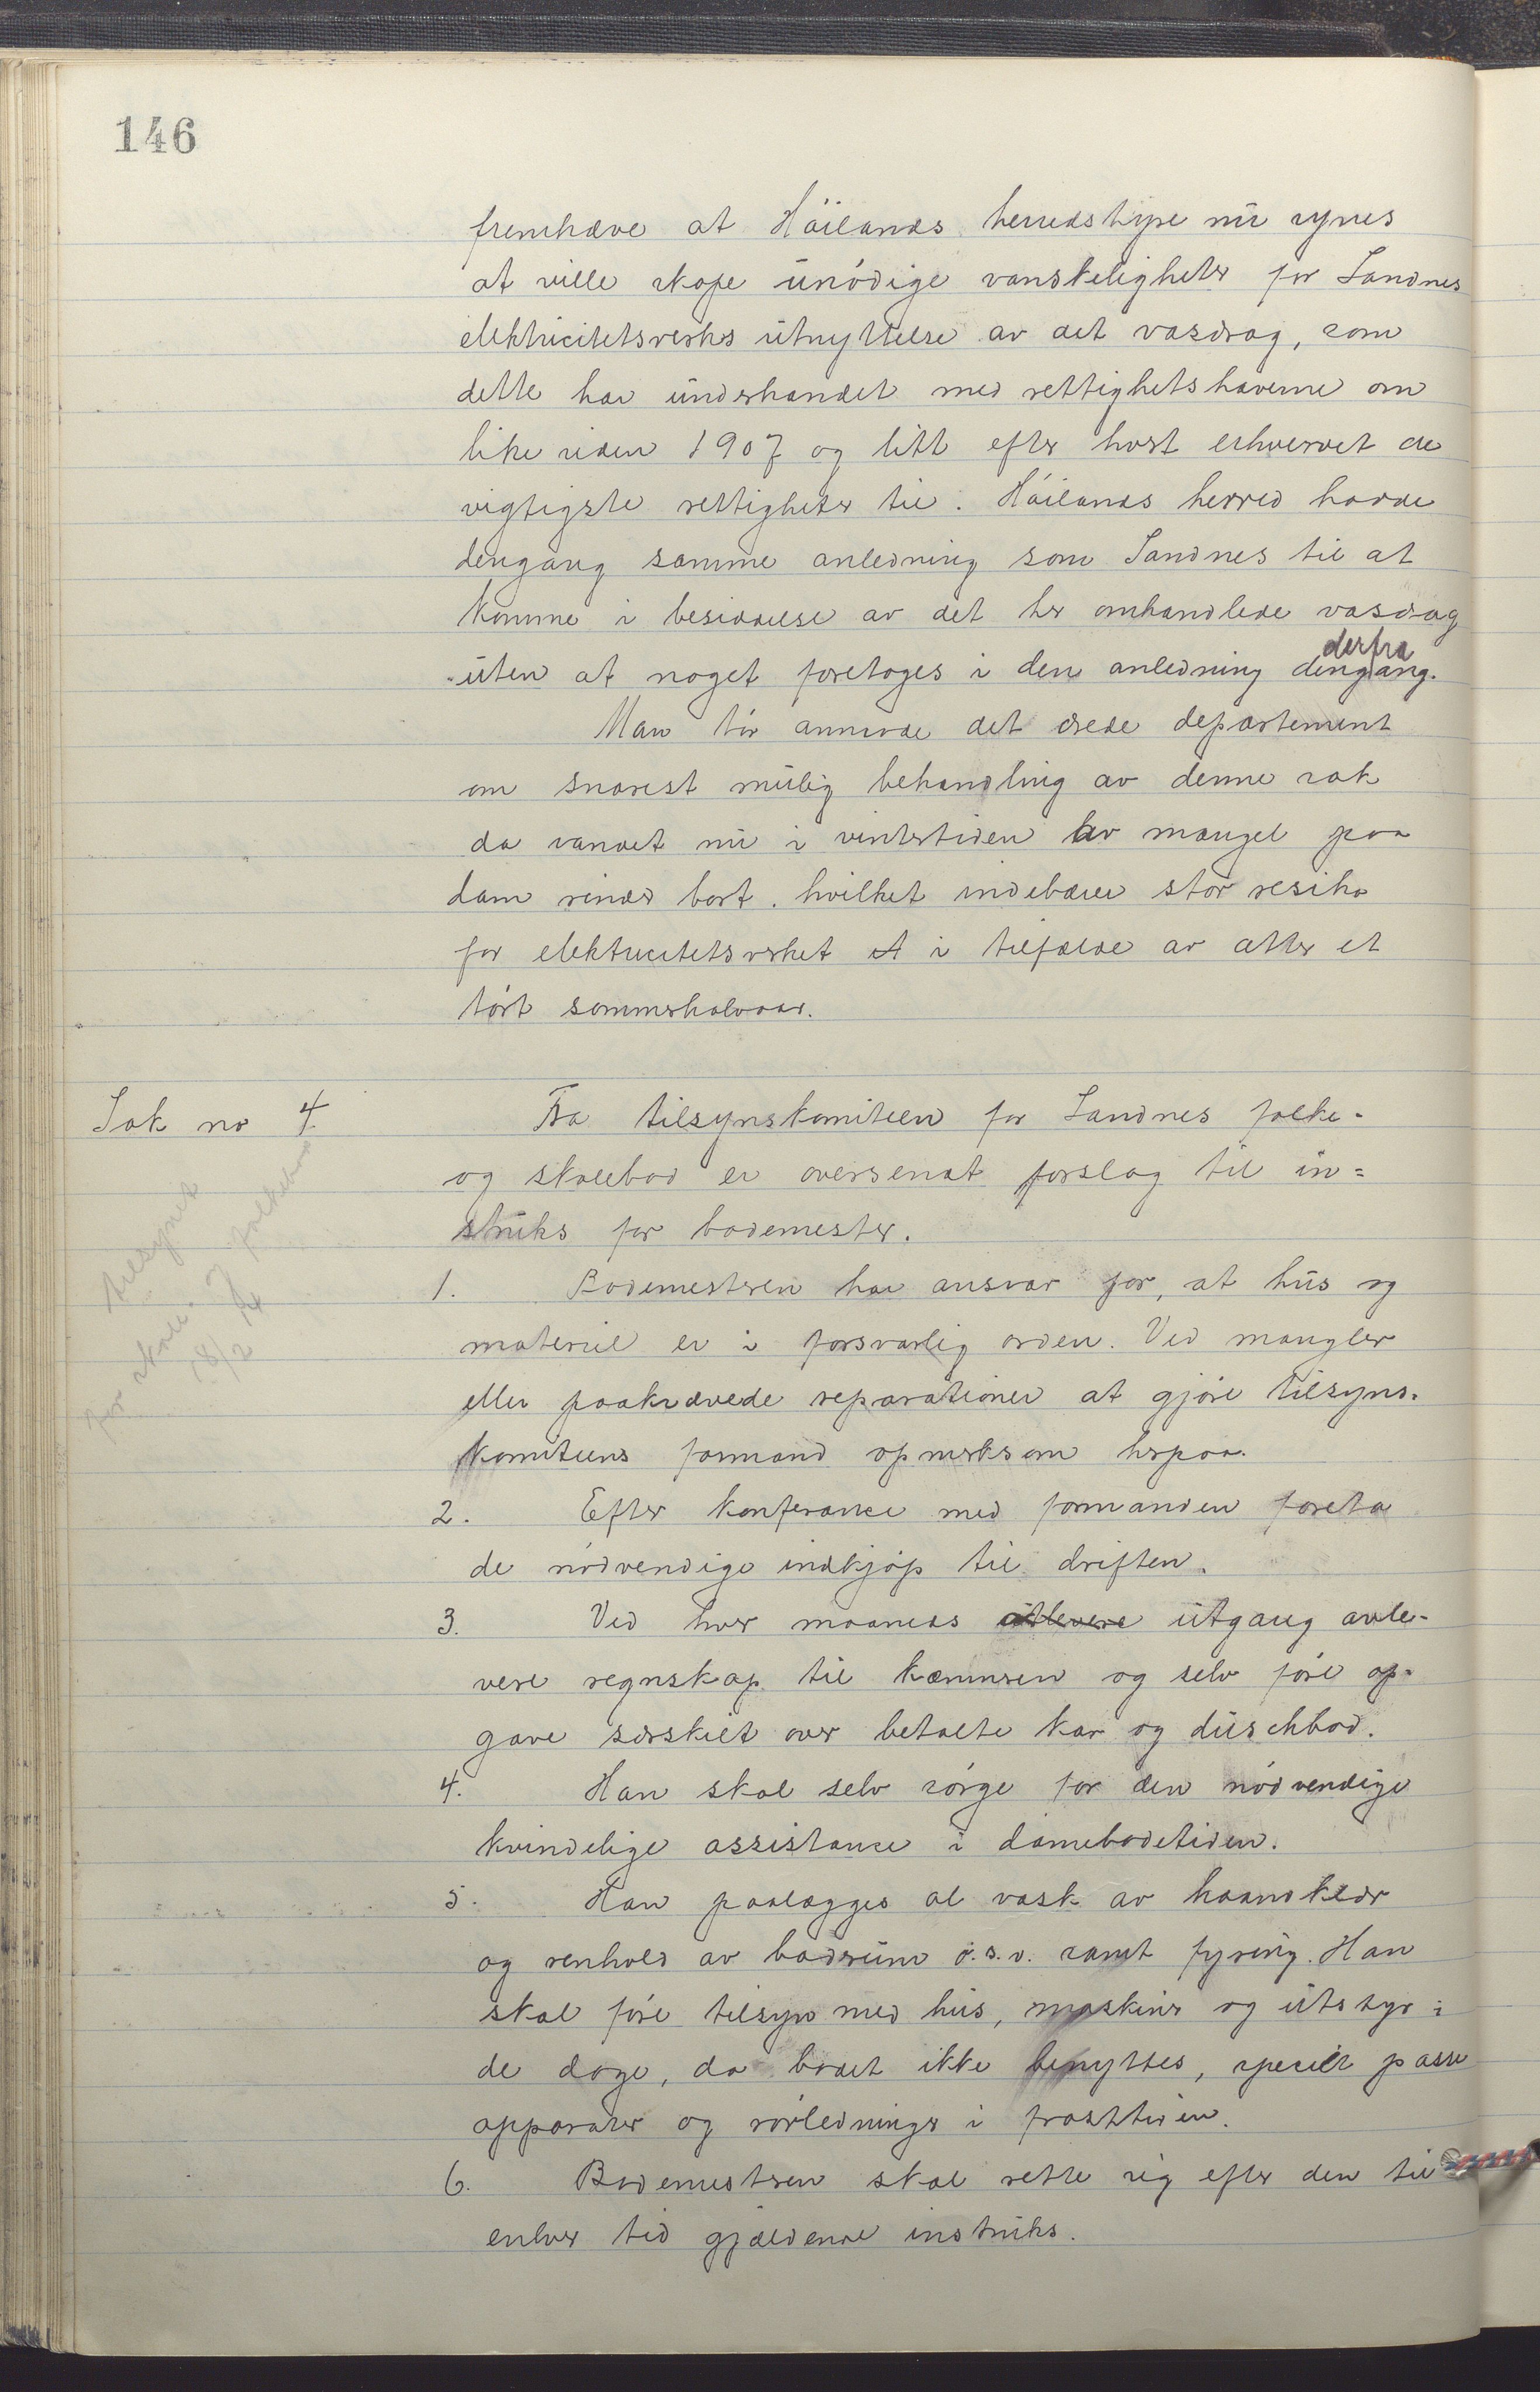 146
fremhæve at Höilands herredstyre nu synes
at ville skape unödige vanskeligheter for Sandnes
elektricitetsverks utnyttelse av det vasdrag, som
dette har underhandlet med rettighetshaverne om
like siden 1907 og litt efter hvert erhvervet de
vigtigste rettigheter til. Höilands herred hadde
dengang samme anledning som Sandnes til at
komme i besiddelse av det her omhandlede vasdrag
derfra
uten at noget foretoges i den anledning dengang.
Man tör anmode det ærede departement
om snarest mulig behandling av denne sak
da vandet nu i vintertiden av mangel paa
dam rinder bort, hvilket indebærer stor resiko
for elektricitetsverket i tilfælde av atter et
tört sommerhalvaar.
Sak no 4. Fra tilsynskomiteen for Sandnes folke-
og skolebad er oversendt forslag til in=
struks for bademester.
1. Bademesteren har ansvar for, at hus og
materiel er i forsvarlig orden. Ved mangler
eller paakrævede reparationer at gjöre tilsyns-
komiteens formand opmerksom herpaa.
2. Efter konferance med formanden foreta
de nödvendige indkjöp til driften.
3. Ved hver maaneds utlevere utgang avle-
vere regnskap til kæmneren og selv före op-
gave særskilt over betalte kar og duschbad.
4. Han skal selv sörge for den nödvendige
kvindelige assistance i damebadetiden.
5. Han paalægges al vask av haandklær
og renhold av badrum o.s.v. samt fyring. Han
skal före tilsyn med hus, maskiner og utstyr i
de dage, da badet ikke benyttes, specielt passe
apparater og rörledninger i frosttiden.
6. Bademesteren skal rette sig efter den til
enhver tid gjældende instruks.
tilsynet
for skole og folkebad
18/2 14